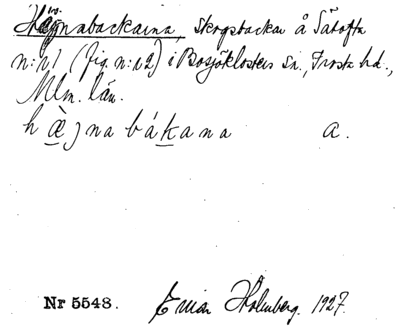 Hägnabackarna, skogsbackar å Sätofta
n:r 1 (fig. n:r 2) i Bosjöklosters sn., Frosta hd.,
Mlm. län.
hæ̀gnabákana a.
Nr 5548. Einar Holmberg. 1927.